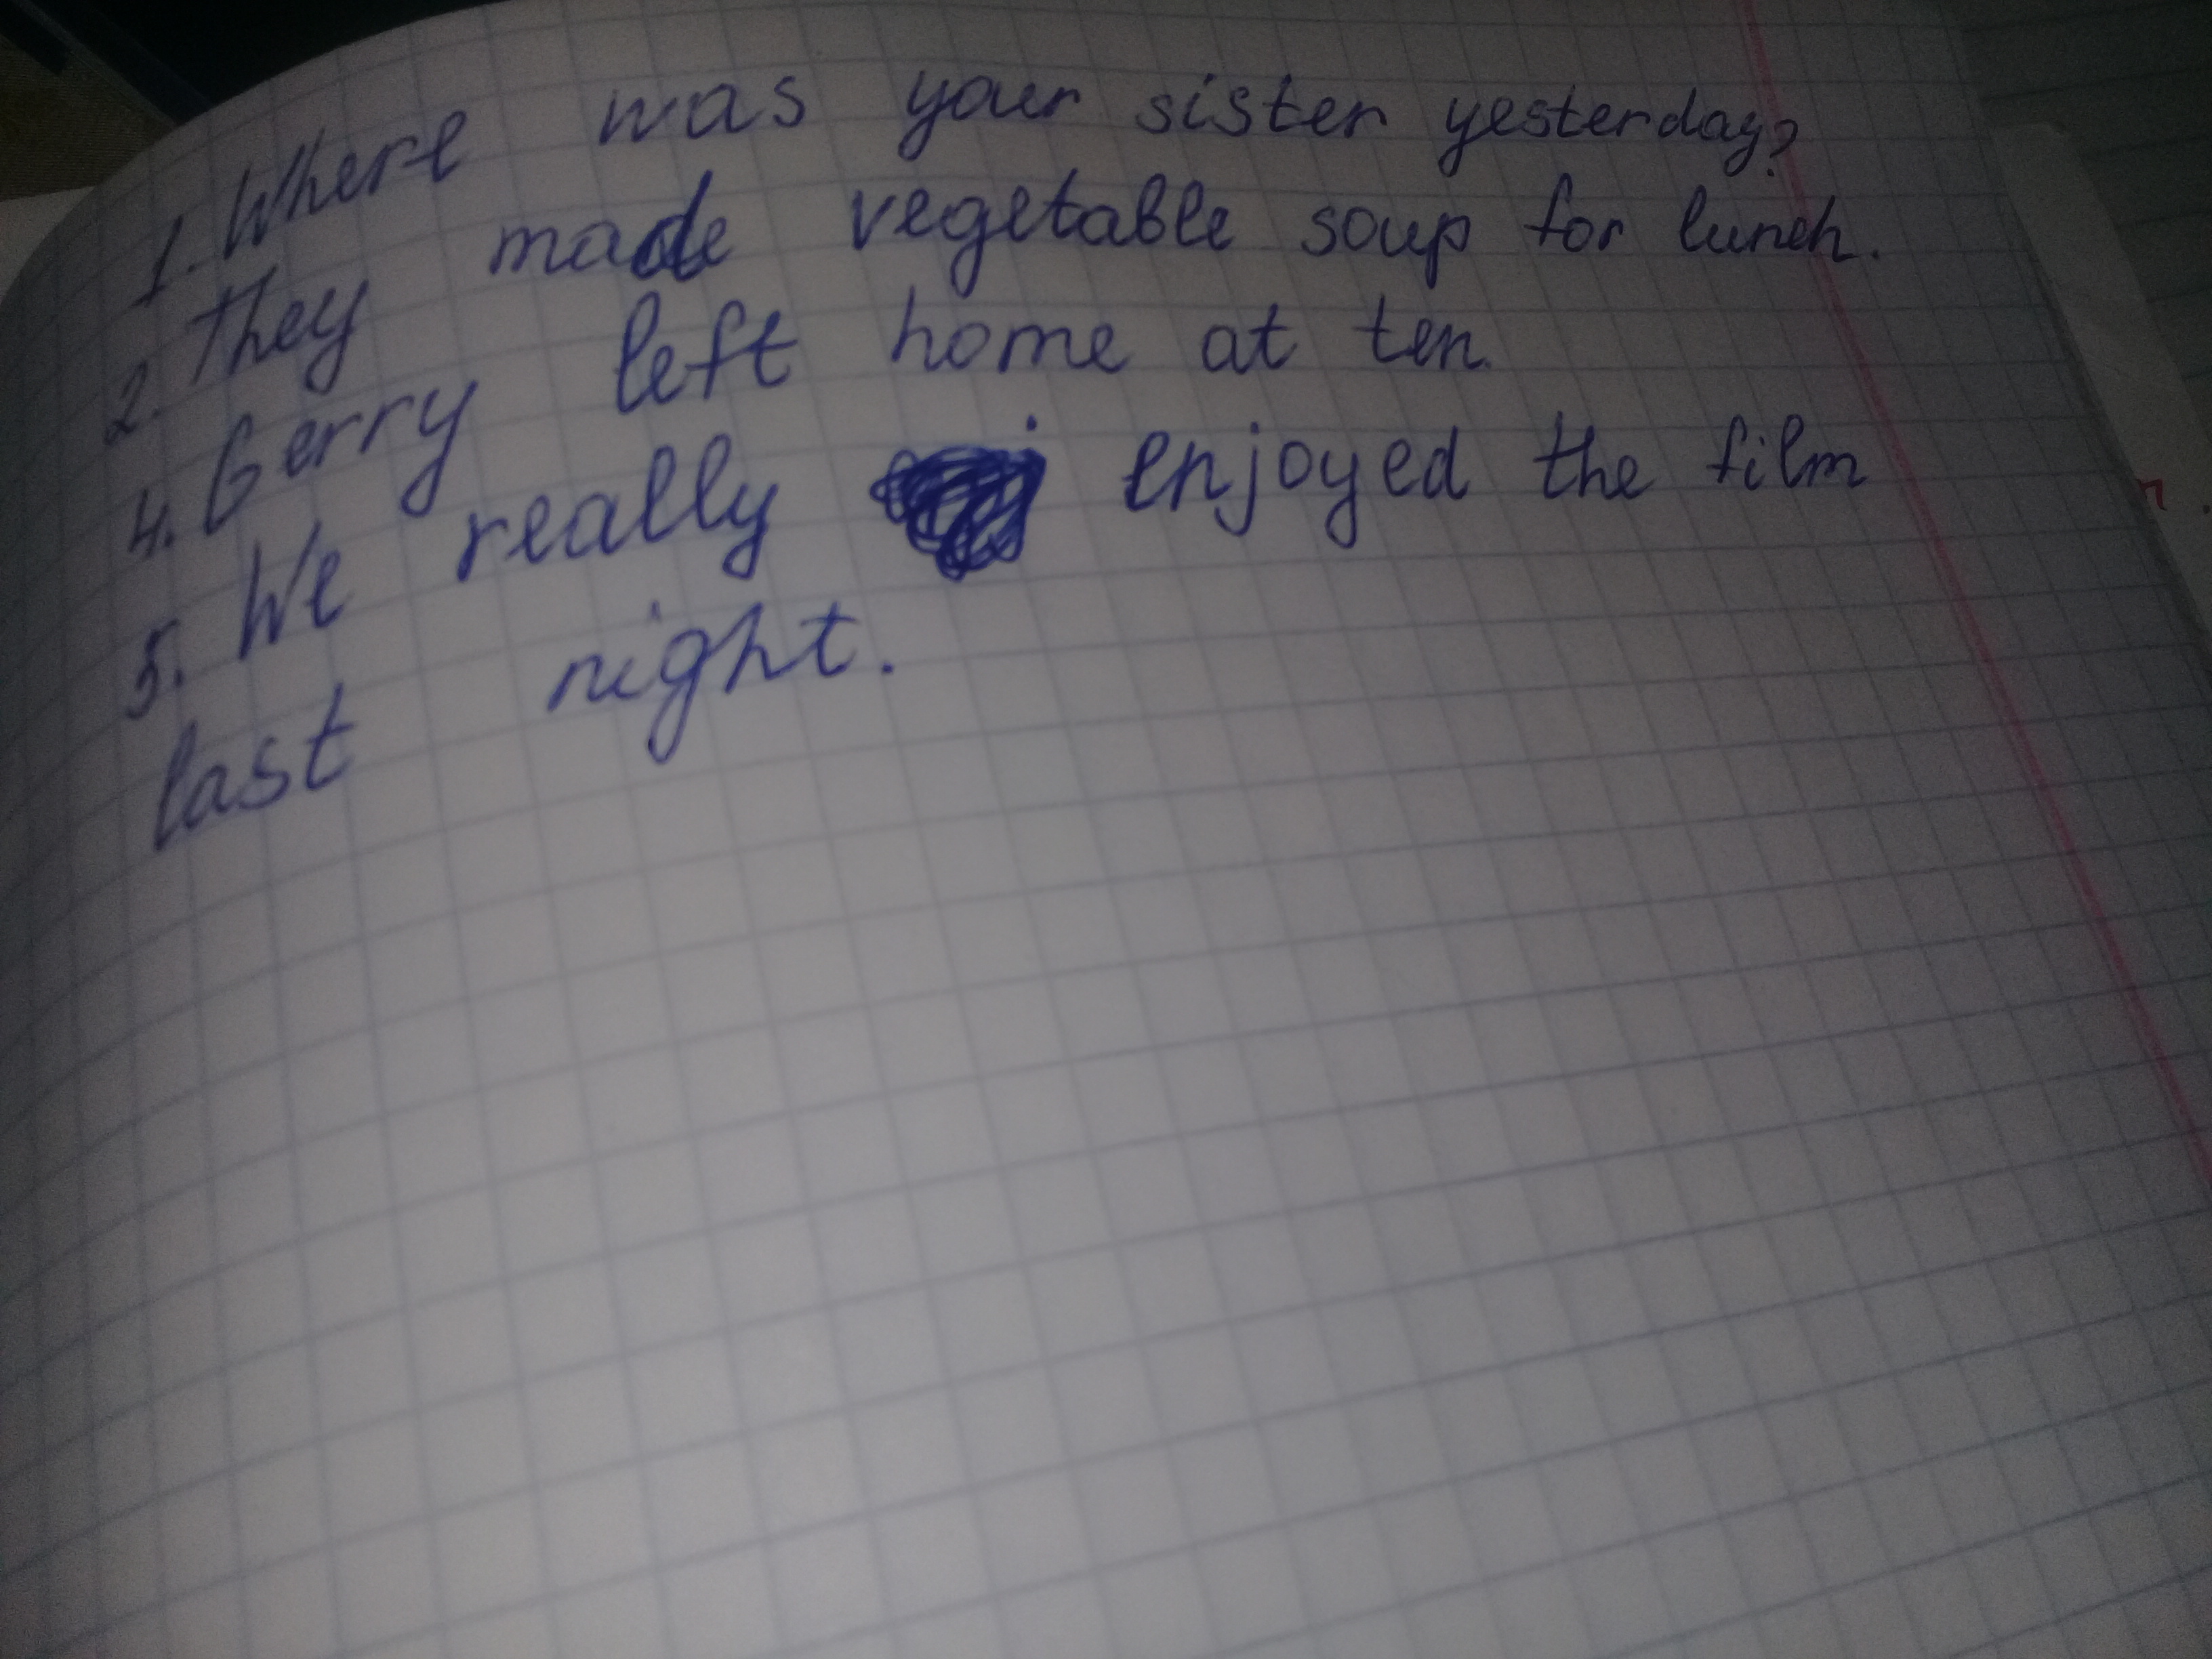 1. Where was your sister yesterday?
2. They made vegetable soup for lunch.
4. Gerry left home at ten.
5. We really enjoyed the film
last night.